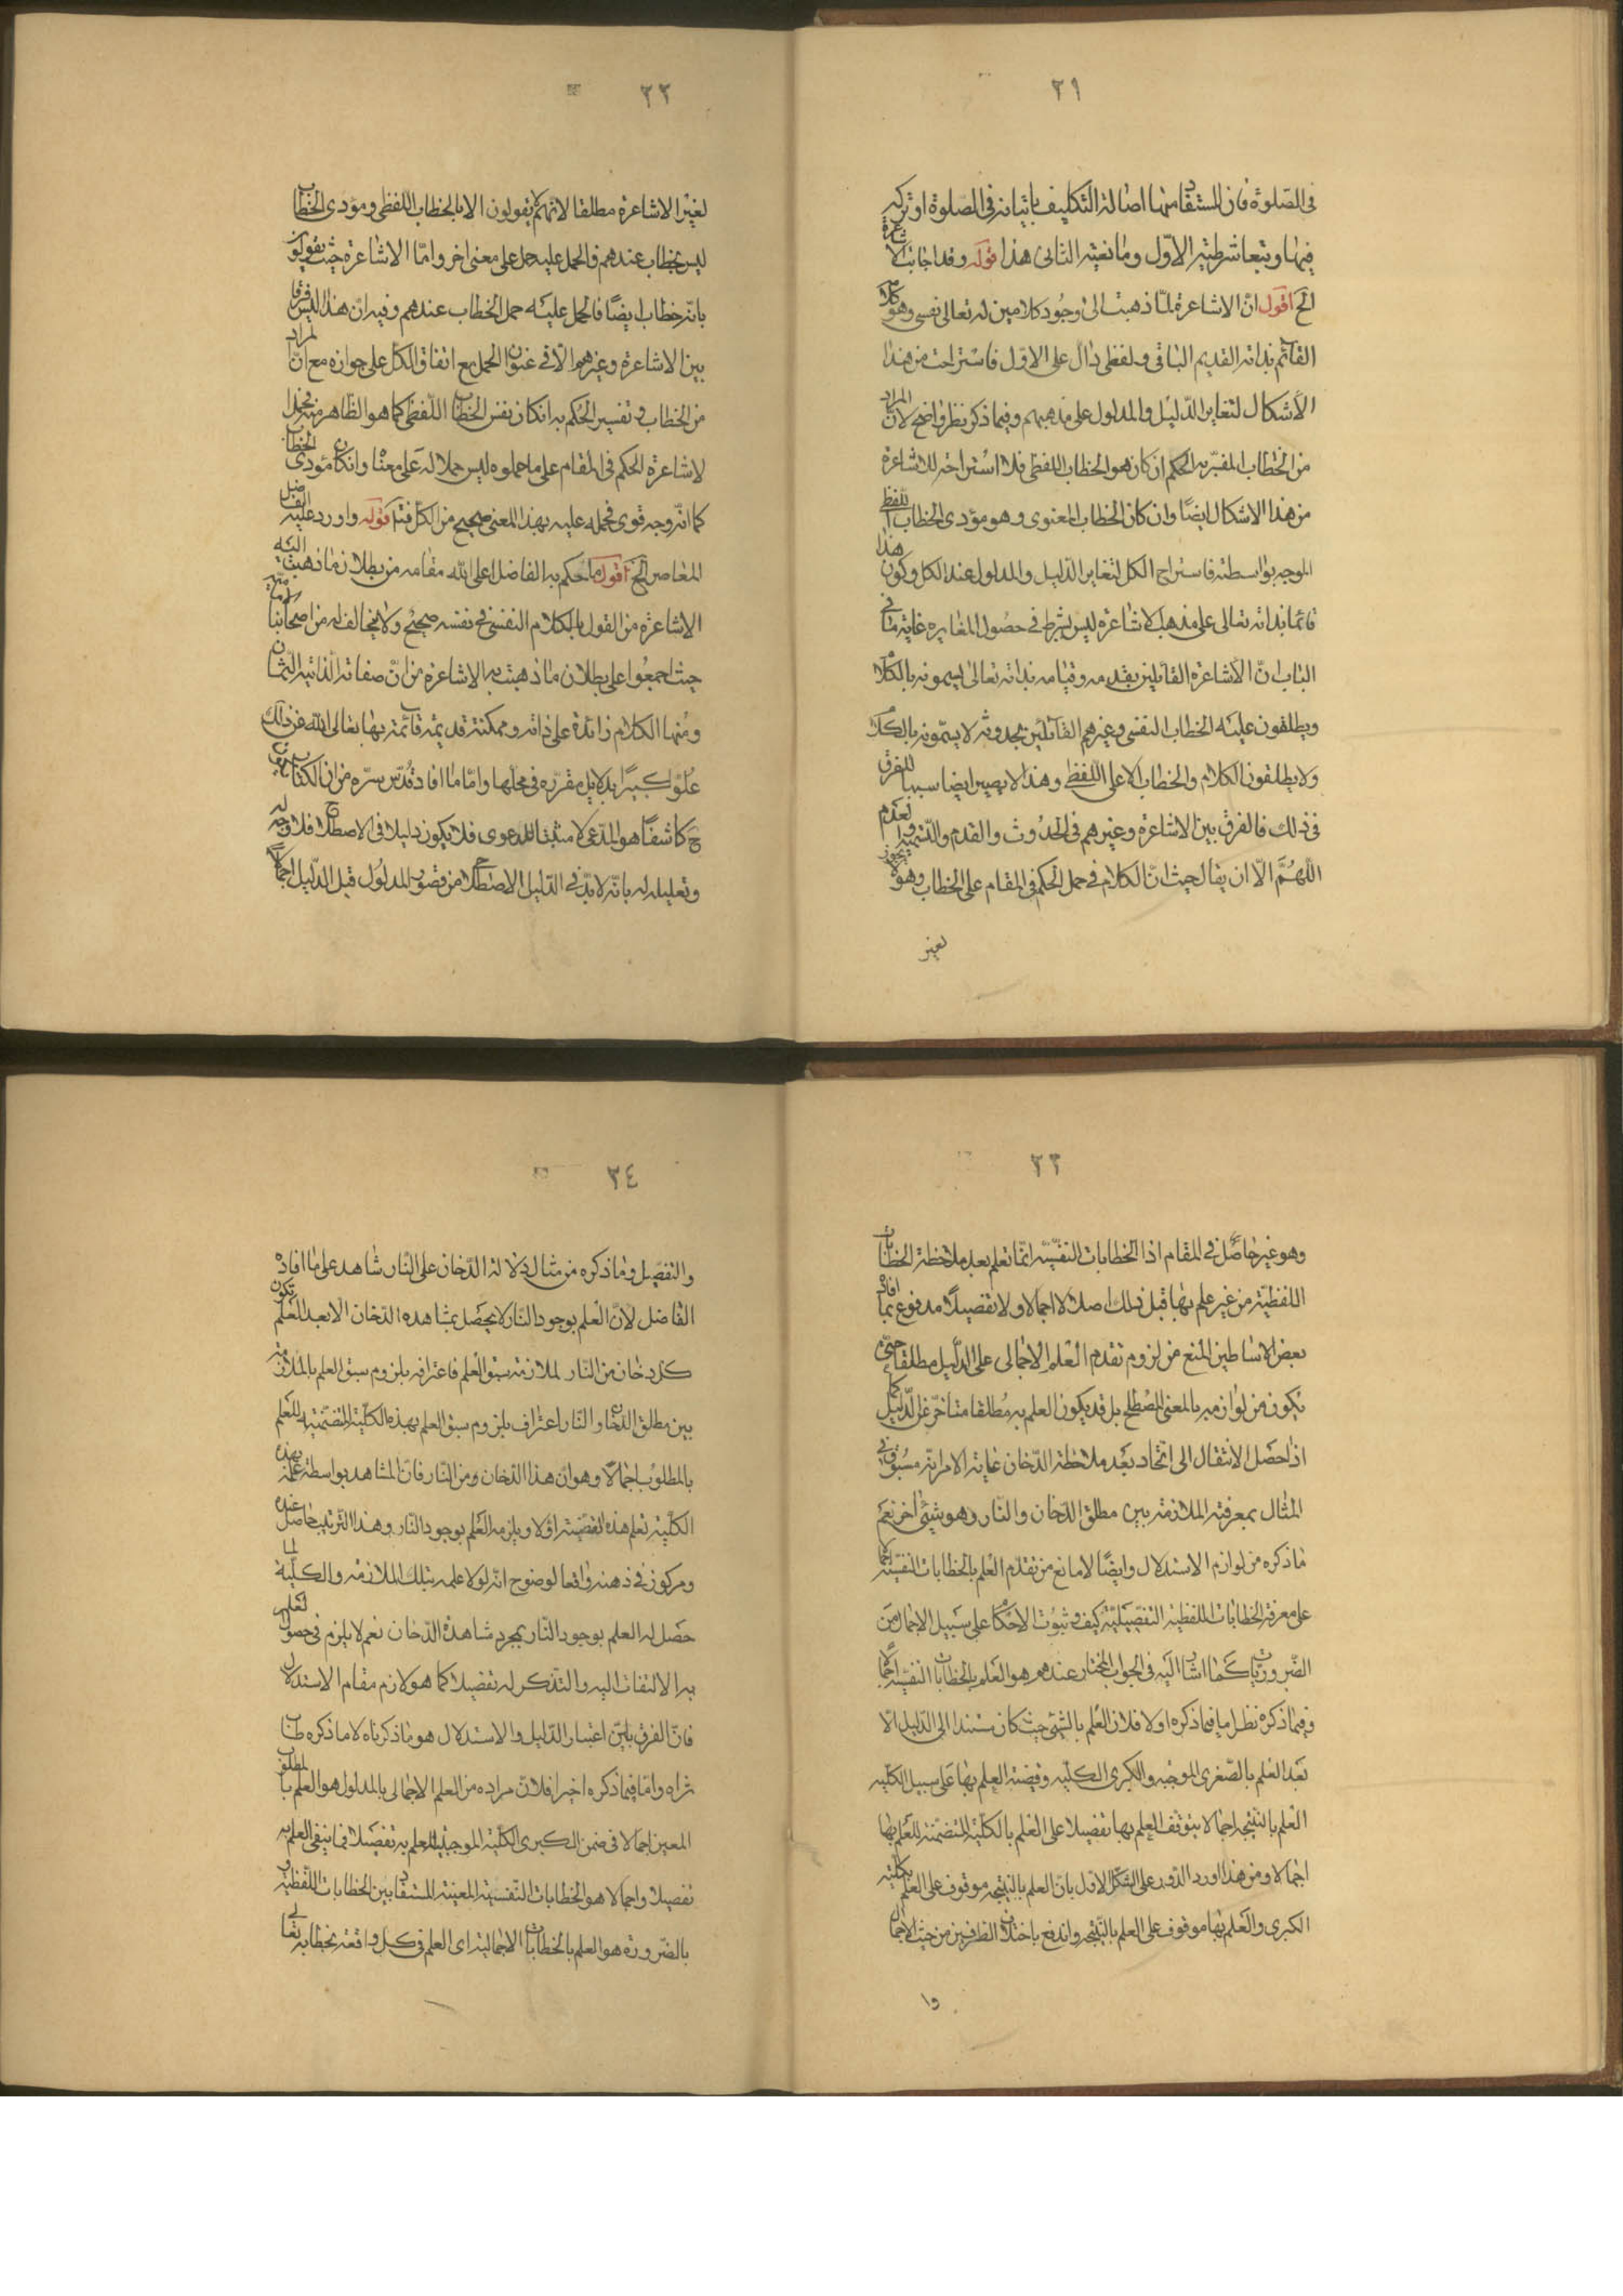 ٣١
في الصلوة فان المستفاد منها اصالة التكليف باتيانه في الصلوة او تركه
فيها وتبعا شرطية الاول ومانعية الثاني هذا قوله وقد اجاب الاشاعرة
الخ اقول ان الاشاعرة لما ذهبت الى وجود كلامين له تعالى نفسي وهو الكلام
القائم بذاته القديم الباقي ولفظي دال على الاول فاستراحت من هذا
الاشكال لتغاير الدليل والمدلول على مذهبهم وفيما ذكر نظر واضح لان المراد
من الخطاب المفسر به الحكم ان كان هو الخطاب اللفظي فلا استراحة للاشاعرة
من هذا الاشكال ايضا وان كان الخطاب المعنوي وهو مؤدى الخطاب اللفظي
الموجه بواسطته فاستراح الكل لتغاير الدليل والمدلول عند الكل وكون هذا
قائما بذاته تعالى على مذهب الاشاعرة ليس بشرط في حصول المغايرة غاية ما في
الباب ان الاشاعرة القائلين بقدمه وقيامه بذاته تعالى يسمونه بالكلام
ويطلقون عليه الخطاب النفسي وغيرهم القائلين بحدوثه لا يسمونه بالكلام
ولا يطلقون الكلام والخطاب الا على اللفظي وهذا لا يصير ايضا سببا للفرق
في ذلك فالفرق بين الاشاعرة وغيرهم في الحدوث والقدم والتسمية وعدم
اللهم الا ان يقال حيث ان الكلام في حمل الحكم في المقام على الخطاب وهو لا يجوز
لغير
٣٢
لغير الاشاعرة مطلقا لانهم لا يقولون الا بالخطاب اللفظي ومؤدى الخطاب
ليس بخطاب عندهم فالحمل عليه حمل على معنى اخر واما الاشاعرة حيث يقولون
بانه خطاب ايضا فالحمل عليه حمل الخطاب عندهم وفيه ان هذا ليس فرقا
بين الاشاعرة وغيرهم الا في عنوان الحمل مع اتفاق الكل على جوازه مع ان المراد
من الخطاب في تفسير الحكم به ان كان نفس الخطاب اللفظي كما هو الظاهر منه فحمل
الاشاعرة الحكم في المقام على ما حملوه ليس حملا له على معناه وان كان مؤدى الخطاب
كما انه وجه قوي فحمله عليه بهذا المعنى صحيح من الكل فتأمل قوله واورد عليه الفاضل
المعاصر الخ اقول ما حكم به الفاضل اعلى الله مقامه من بطلان ما ذهبت اليه
الاشاعرة من القول بالكلام النفسي في نفسه صحيح ولا مخالف له من اصحابنا
حيث اجمعوا على بطلان ما ذهبت به الاشاعرة من ان صفاته الذاتية الثمان
ومنها الكلام زائدة على ذاته وممكنة قديمة قائمة بها تعالى الله عن ذلك
علوا كبيرا بدلايل مقررة في محلها واما ما افاد قدس سره من ان الكتاب يكون
ح كاشفا هو المدعى لا مثبتا للدعوى فلا يكون دليلا في الاصطلاح فلا وجه له
وتعليله له بانه لابد في الدليل الاصطلاحي من تصور المدلول قبل الدليل اجمالا
٣٣
وهو غير حاصل في المقام اذ الخطابات النفسية انما تعلم بعد ملاحظة الخطابات
اللفظية من غير علم بها قبل ذلك اصلا لا اجمالا ولا تفصيلا مدفوع بما افاده
بعض الاساطين المنع من لزوم تقدم العلم الاجمالي على الدليل مطلقا حتى
يكون من لوازمه بالمعنى المصطلح بل قد يكون العلم به مطلقا متاخر عن الدليل كما
اذا حصل الانتقال الى اتحاد بعد ملاحظة الدخان غاية الامر انه مسبوق في
المثال بمعرفته الملازمة بين مطلق الدخان والنار وهو شيئ اخر نعم
ما ذكره من لوازم الاستدلال وايضا لا مانع من تقدم العلم بالخطابات النفسية اجمالا
على معرفة الخطابات اللفظية التفصيلية كيف وثبوت الاحكام على سبيل الاجمال من
الضروريات كما اشار اليه في الجواب المختار عندهم هو العلم بالخطابات النفسية اجمالا
وفيما ذكره نظر اما فيما ذكره اولا فلان العلم بالشيئ حيث كان مستندا الى الدليل الا
بعد العلم بالصغرى الموجبه والكبرى الكليه وقضية العلم بها على سبيل الكليه
العلم بالنتيجه اجمالا فيتوقف العلم بها تفصيلا على العلم بالكلية المتضمنة للعلم بها
اجمالا ومن هذا اورد الدور على الشكل الاول بان العلم بالنتيجه موقوف على العلم بكلية
الكبرى والعلم بها موقوف على العلم بالنتيجه واندفع باختلاف الطرفين من حيث الاجمال
وا
٣٤
والتفصيل وما ذكره من مثال دلالة الدخان على النار شاهد على ما افاده
الفاضل لان العلم بوجود النار لا يحصل بمشاهده الدخان الا بعد العلم بكون
كل دخان من النار لملازمة سبق العلم فاعترافه بلزوم سبق العلم بالملازمة
بين مطلق الدخان والنار اعتراف بلزوم سبق العلم بهذه الكلية المتضمنة للعلم
بالمطلوب اجمالا وهو ان هذا الدخان ومن النار فان المشاهد بواسطة علمه بهذه
الكلية تعلم هذه القضية اولا ويلزمه العلم بوجود النار وهذا الترتيب حاصل عنده
ومركوز في ذهنه واقعا لوضوح انه لولا علمه بتلك الملازمة والكلية لما
حصل له العلم بوجود النار بمجرد مشاهدة الدخان نعم لا يلزم في حصول العلم
به الالتفات اليه والتذكر له تفصيلا كما هو لازم مقام الاستدلال
فان الفرق بين اعتبار الدليل والاستدلال هو ما ذكرناه لا ما ذكره طاب
ثراه واما فيما ذكره اخيرا فلان مراده من العلم الاجمالي بالمدلول هو العلم بالمطلوب
المعين اجمالا في ضمن الكبرى الكلية الموجبة للعلم به تفصيلا فما ينفى العلم به
تفصيلا واجمالا هو الخطابات النفسية المعينة المستفاد بين الخطابات اللفظية و
بالضرورة هو العلم بالخطابات الاجمالية اى العلم في كل واقعة بخطابه تعالى